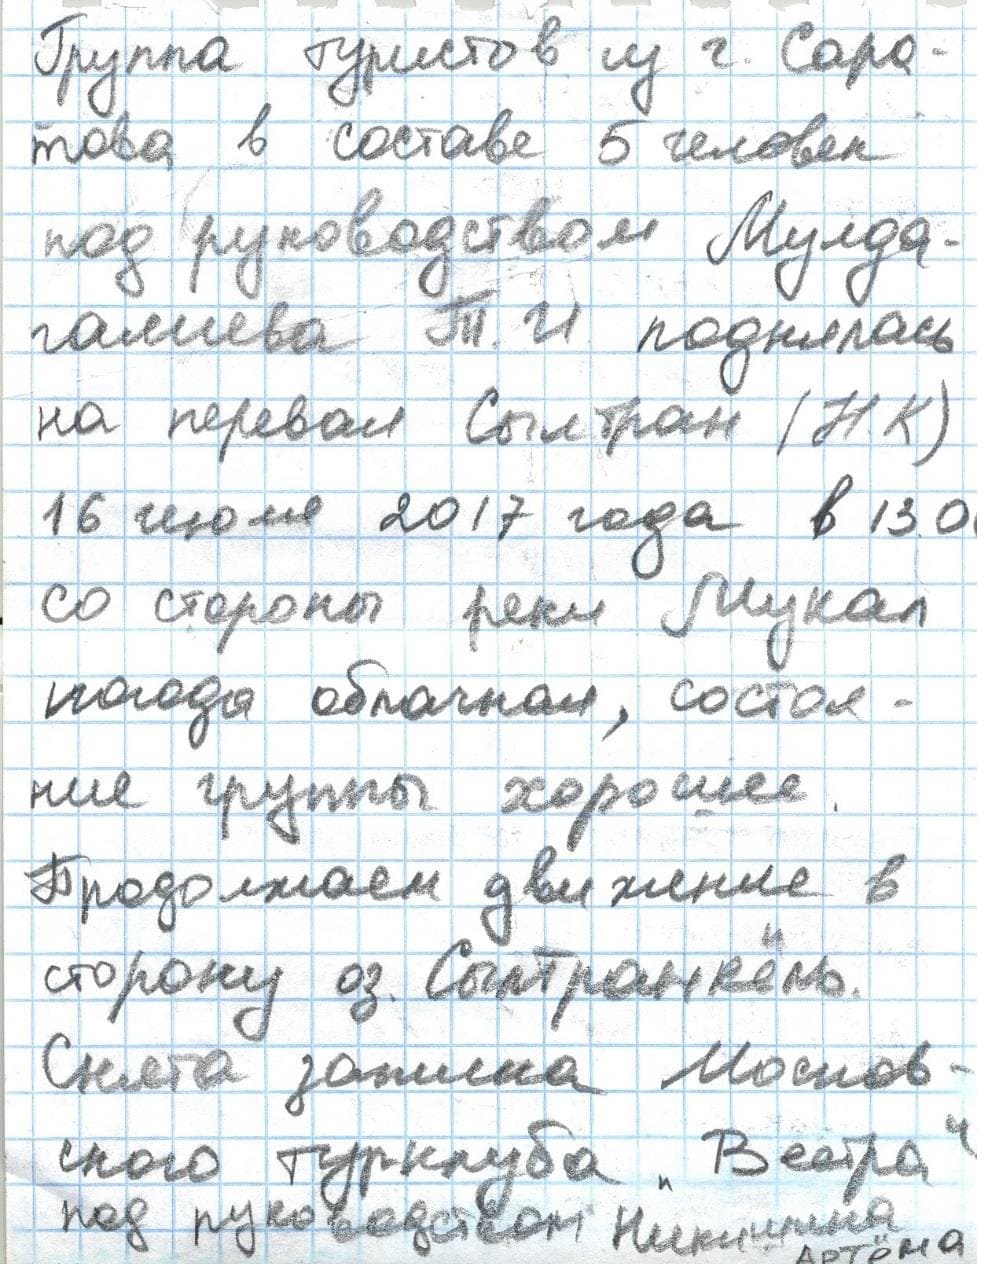 Группа туристов из г. Сара-
това в составе 5 человек
под руководством Мулда-
галиева Т. И поднялась
на перевал Сылтран (Н.К)
16 июля 2017 года в 13.00
со стороны реки Мукал
погода облачная, состоя-
ние группы хорошее.
Продолжаем движение в
сторону оз. Сылтранкёль.
Снята записка Москов-
ского турклуба "Вестра"
под руководством Никишина
Артёма